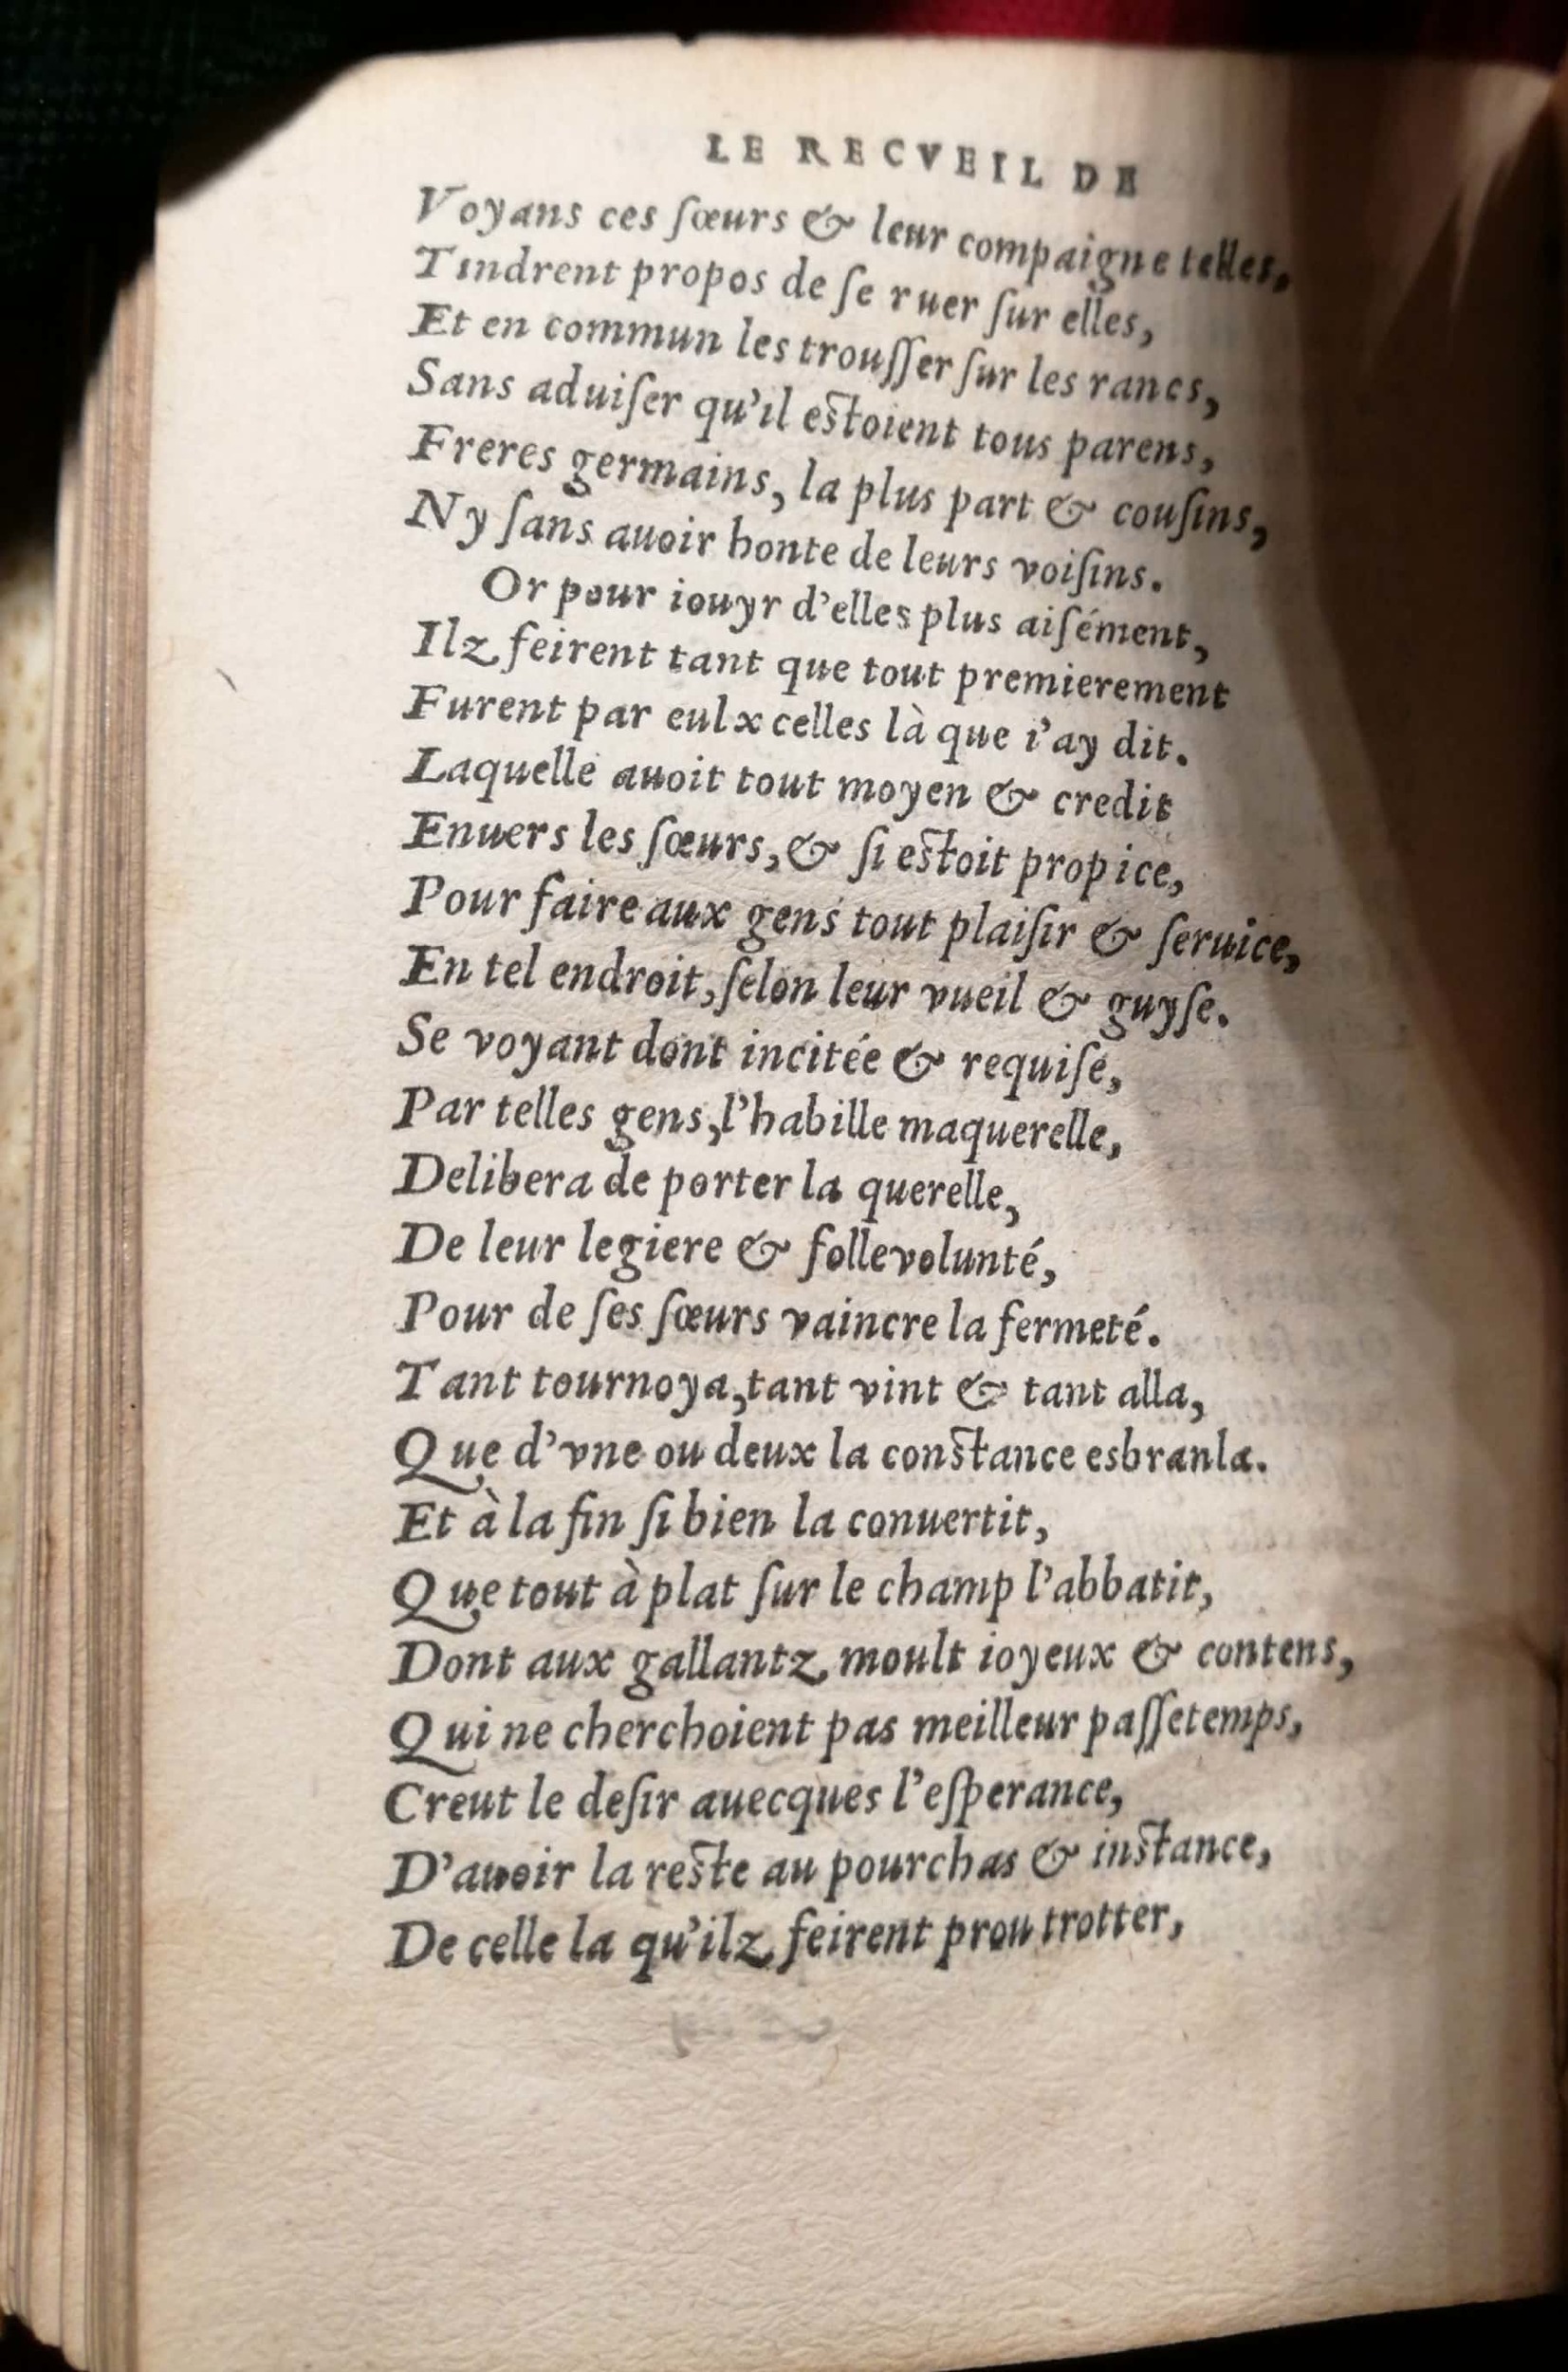 LE RECVEIL DE
Voyans ces ſœurs & leur compaigne telles,
Tindrent propos de ſe ruer ſur elles,
Et en commun les trouſſer ſur les rancs,
Sans aduiſer qu'il eſtoient tous parens,
Freres germains, la plus part & couſins,
Ny ſans auoir honte de leurs voiſins.
Or pour iouyr d'elles plus aiſément,
Ilz feirent tant que tout premierement
Furent par eulx celles là que i'ay dit.
Laquelle auoit tout moyen & credit
Enuers les ſœurs, & ſi eſtoit propice,
Pour faire aux gens tout plaiſir & ſeruice,
En tel endroit, ſelon leur vueil & guyſe.
Se voyant dont incitée & requiſe,
Par telles gens, l'habille maquerelle,
Delibera de porter la querelle,
De leur legiere & folle volunté,
Pour de ſes ſœurs vaincre la fermeté.
Tant tournoya, tant vint & tant alla,
Que d'vne ou deux la conſtance esbranla.
Et à la fin ſi bien la conuertit,
Que tout à plat ſur le champ l'abbatit,
Dont aux gallantz moult ioyeux & contens,
Qui ne cherchoient pas meilleur paſſetemps,
Creut le deſir auecques l'eſperance,
D'auoir la reſte au pourchas & inſtance,
De celle la qu'ilz feirent prou trotter,